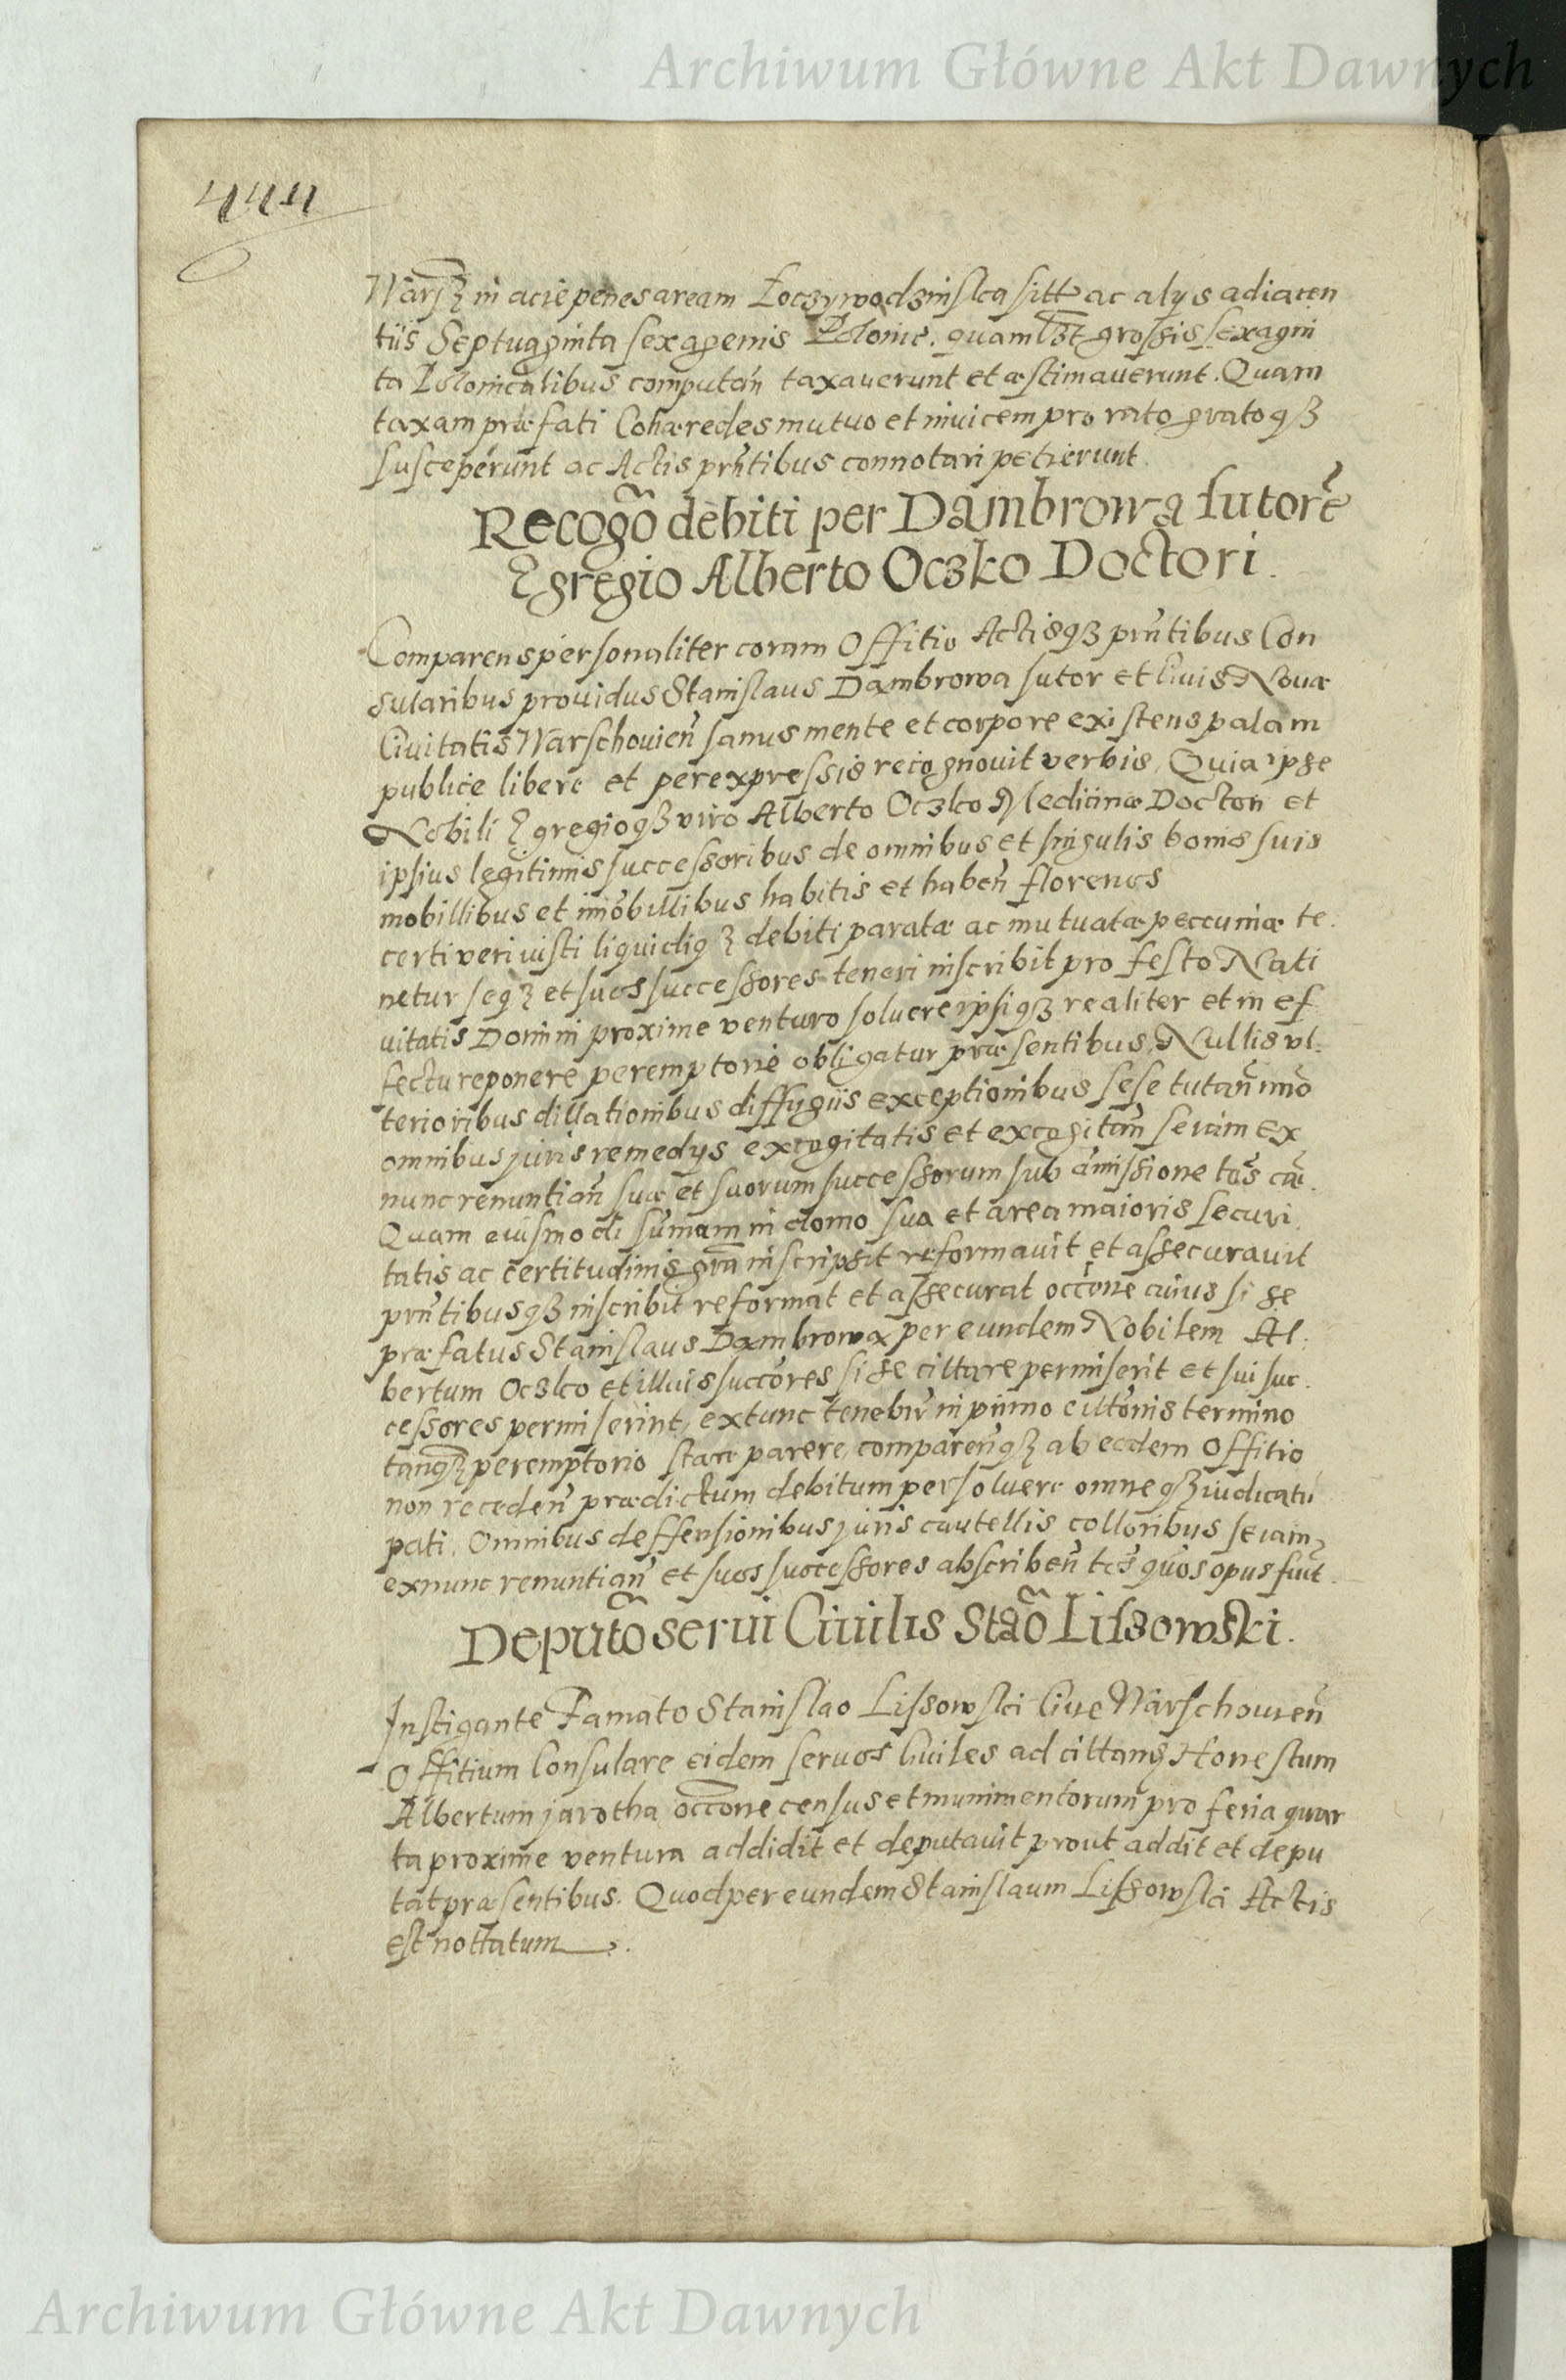 Archiwum Główne Akt Dawnych
444
Warsz in acie penes aream Łoczywodzinska sitt ac alys adiacen
tiis Septuaginta sexagenis Polonic. quamlzt grossis sexagin
ta Polonicalibus computan̄ taxauerunt et æstimauerunt. Quam
taxam præfati Cohæredes mutuo et inuicem pro rato gratoqз
susceperunt ac Actis prn̄tibus connotari petierunt.
Recogō debiti per Dambrowa sutorē
Egregio Alberto Oczko Doctori.
Comparens personaliter coram Offitio Actisqз prn̄tibus Con
sularibus prouidus Stanislaus Dambrowa sutor et Ciuis Nouæ
Ciuitatis Warschouien̄ sanus mente et corpore existens palam
publice libere et per expressis recognouit verbis, Quia ipse
Nobili Egregioqз viro Alberto Oczko Medicinæ Doctori et
ipsius legitimis successoribus de omnibus et singulis bonis suis
mobillibus et im̄obillibus habitis et haben̄ florenos
certi veri iusti liquidiqз debiti paratæ ac mutuatæ peccuniæ te.
netur seqз et suos successores teneri inscribit pro festo Nati
uitatis Domini proxime venturo soluere ipsiqз realiter et in ef
fectu reponere peremptorie obligatur præsentibus, Nullis vl.
terioribus dillationibus diffugiis exceptionibus sese tutan̄ imo
omnibus juris remedys excogitatis et excogitan̄ seiam ex
nunc renuntian̄ suæ et suorum successorum sub amissione tōs cæ.
Quam eiusmodi sum̄am in domo sua et area maioris securi
tatis ac certitudinis grā inscripsit reformauit et assecurauit
prn̄tibusqз inscribit reformat et assecurat occōne cuius si se
præfatus Stanislaus Dambrowa per eundem Nobilem Al.
bertum Oczko et illius succōres si se cittare permiserit et sui suc.
cessores permiserint, extunc tenebir̄ in primo cittōnis termino
tanqз peremptorio stare parere, comparen̄qз ab eodem Offitio
non receden̄ prædictum debitum persoluere omneqз iudicatū
pati. Omnibus deffensionibus juris cautellis colloribus seiam
exnunc renuntian̄ et suos successores abscriben̄ tōs quos opus fuit.
Deputō serui Ciuilis Staō Lissowski.
Instigante Famato Stanislao Lissowski Ciue Warschouien̄
Offitium Consulare eidem seruos Ciuiles ad cittan̄ Honestum
Albertum jarotha occōne census et munimentorum pro feria quar
ta proxime ventura addidit et deputauit prout addit et depu
tat præsentibus. Quod per eundem Stanislaum Lissowski Actis
est nottatum.
Archiwum Główne Akt Dawnych